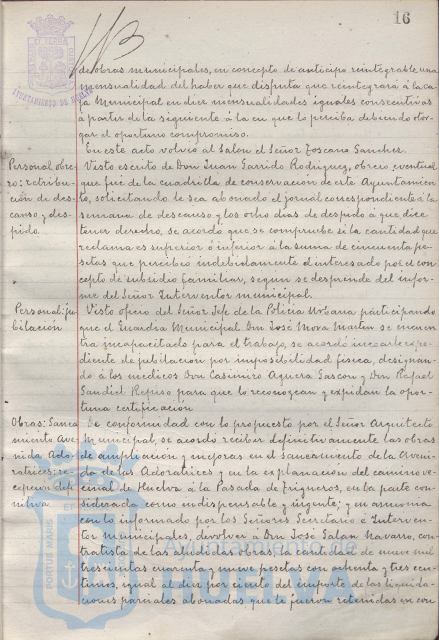 16
de obras municipales, en concepto de anticipo reintegrable una
mensualidad del haber que disfruta que reintegrará á la ca
ja Municipal en diez mensualidades iguales consecutivas
á partir de la siguiente á la en que lo perciba debiendo otor
gar el oportuno compromiso.
En este acto volvió al Salón el Señor Toscano Sanchez.
Personal obre
ro: retribu
ción de des
canso y des
pido.
Visto escrito de Don Juan Garrido Rodriguez, obrero eventual
que fué de la cuadrilla de conservación de este Ayuntamien
to, solicitando le sea abonado el jornal correspondiente á la
semana de descanso y los ocho dias de despido á que dice
tener derecho, se acordó que se compruebe si la cantidad que
reclama es superior ó inferior á la suma de cincuenta pe
setas que percibió indebidamente el interesado por el con
cepto de subsidio familiar, según se desprende del infor
me del Señor Interventor municipal.
Personal: ju
bilación
Visto oficio del Señor Jefe de la Policia Urbana participando
que el Guardia Municipal Don José Mora Martin se encuen
tra incapacitado para el trabajo, se acordó incoar expe
diente de jubilación por imposibilidad fisica, designan
do á los médicos Don Casimiro Aguera Gascon y Don Rafael
Sandiel Repiso para que lo reconozcan y expidan la opor
tuna certificación
Obras: Sanea
miento Ave
nida Ado
ratrices: re
cepción defi
nitiva
De conformidad con lo propuesto por el Señor Arquitecto
Municipal, se acordó recibir definitivamente las obras
de ampliación y mejoras en el Saneamiento de la Aveni
da de las Adoratrices y en la explanación del camino ve
cinal de Huelva á la Pasada de Trigueros, en la parte con
siderada como indispensable y urgente; y en armonia
con lo informado por los Señores Secretario é Interven
tor municipales, devolver á Don José Galan Navarro, con
tratista de las aludidas obras, la cantidad de nueve mil
trescientas cuarenta y nueve pesetas con ochenta y tres cen
timos, igual al diez por ciento del importe de las liquida
ciones parciales abonadas que le fueron retenidas en con
PORTUS MARIS